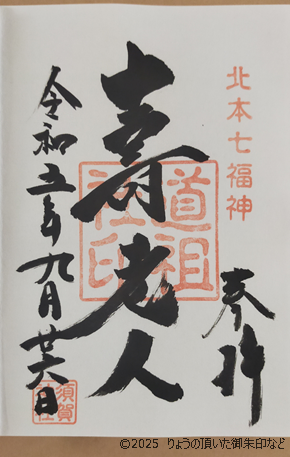 北本七福神
奉拝
寿老人
道祖
社印
令和五年九月廿六日
須賀
社
©2025 りょうの頂いた御朱印など